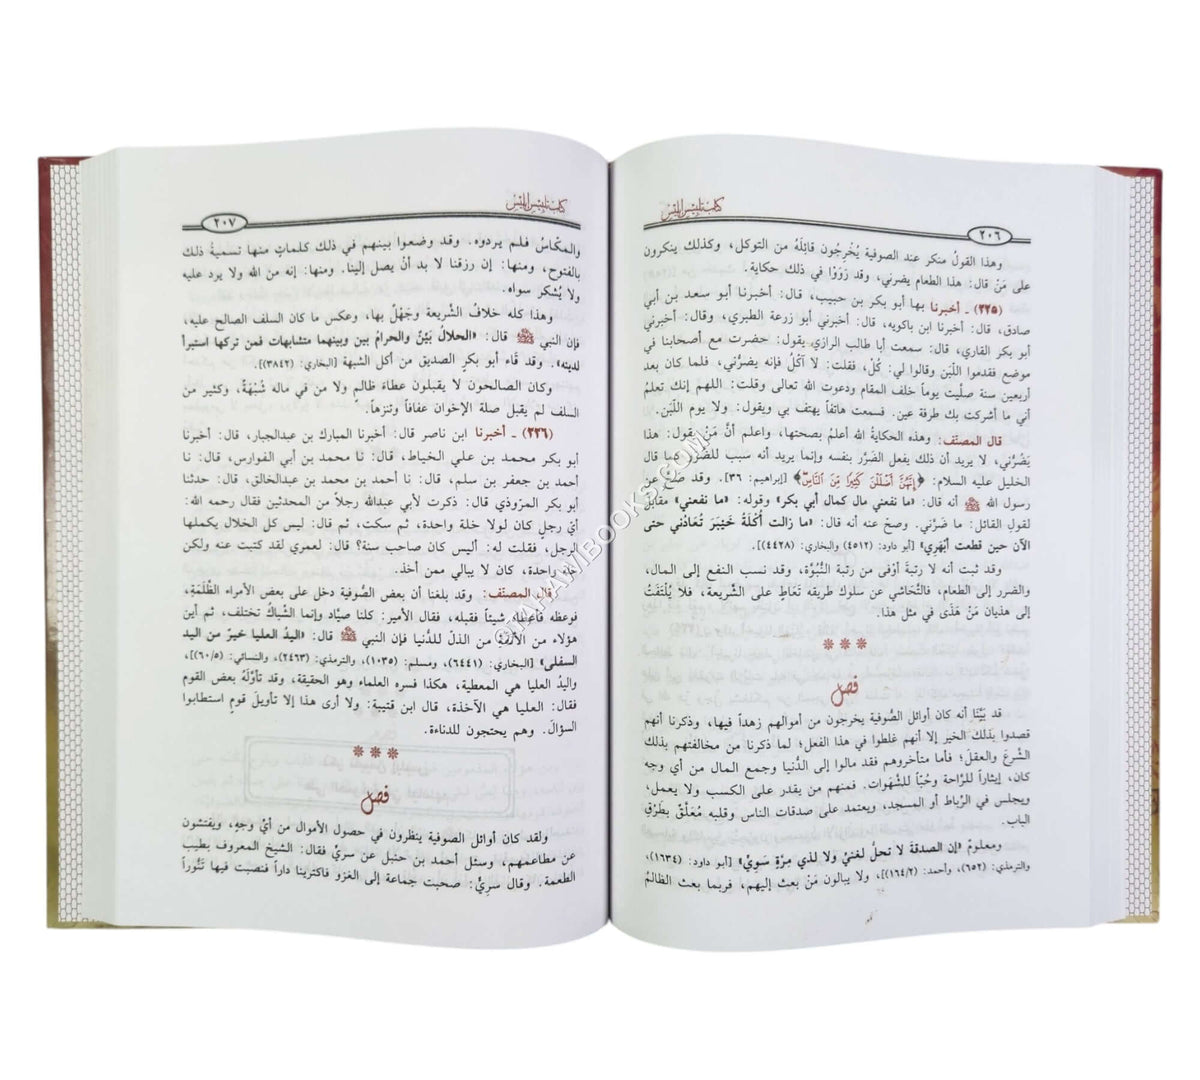 كتاب تلبيس إبليس
٢٠٦
وهذا القولُ منكر عند الصوفية يُخْرِجُون قائلَهُ من التوكل، وكذلك ينكرون
على مَنْ قال: هذا الطعام يضرني، وقد رَوَوْا في ذلك حكاية.
(٢٢٥) ـ أخبرنا بها أبو بكر بن حبيب، قال: أخبرنا أبو سعد بن أبي
صادق، قال: أخبرنا ابن باكويه، قال: أخبرني أبو زرعة الطبري، وقال: أخبرني
أبو بكر القاري، قال: سمعت أبا طالب الرازي يقول: حضرت مع أصحابنا في
موضع فقدموا اللَّبَن وقالوا لي: كُلْ، فقلت: لا آكُلُ فإنه يضرُّني، فلما كان بعد
أربعين سنة صلَّيت يوماً خلف المقام ودعوت الله تعالى وقلت: اللهم إنك تعلمُ
أني ما أشركت بك طرفة عين. فسمعت هاتفاً يهتف بي ويقول: ولا يوم اللَّبَن.
قال المصنّف: وهذه الحكاية الله أعلمُ بصحتها، واعلم أنَّ مَنْ يقول: هذا
يَضُرُّني، لا يريد أن ذلك يفعل الضَّرَر بنفسه وإنما يريد أنه سبب للضَّرَر كما قال
الخليل عليه السلام: ﴿إِنَّهُنَّ أَضْلَلْنَ كَثِيرًا مِنَ النَّاسِ﴾ [إبراهيم: ٣٦]. وقد صَحَّ عن
رسول الله ﷺ أنه قال: «ما نفعني مال كمال أبي بكر» وقوله: «ما نفعني» مقابل
لقول القائل: ما ضَرَّني. وصحَّ عنه أنه قال: «ما زالت أُكْلَةُ خَيْبَرَ تُعَادُني حتى
الآن حين قطعت أَبْهَرِي» [أبو داود: (٤٥١٢) والبخاري: (٤٤٢٨)].
وقد ثبت أنه لا رتبةَ أوْفى من رتبة النُّبُوَّة، وقد نسب النفع إلى المال،
والضرر إلى الطعام، فالتَّحَاشي عن سلوك طريقه تَعَاطٍ على الشَّريعة، فلا يُلْتَفَتُ
إلى هذيان مَنْ هَذَى في مثل هذا.
فصل
قد بَيَّنَا أنه كان أوائل الصُّوفية يخرجون من أموالهم زهداً فيها، وذكرنا أنهم
قصدوا بذلك الخير إلا أنهم غلطوا في هذا الفعل؛ لما ذكرنا من مخالفتهم بذلك
الشَّرعَ والعقلَ؛ فأما متأخروهم فقد مالوا إلى الدُّنيا وجمع المال من أي وجه
كان، إيثاراً للرَّاحة وحُبّاً للشَّهوات. فمنهم من يقدر على الكسب ولا يعمل،
ويجلس في الرِّباط أو المسجد، ويعتمد على صدقات الناس وقلبه مُعَلَّقٌ بَطَرْقِ
الباب.
ومعلومٌ «إن الصدقة لا تحلُّ لغنيٍّ ولا لذي مِرَّةٍ سَوِيٍّ» [أبو داود: (١٦٣٤)،
والترمذي: (٦٥٢)، وأحمد: (١٦٤/٢)]، ولا يبالون مَنْ بعث إليهم، فربما بعث الظالمُ
كتاب تلبيس إبليس
٢٠٧
والمكّاسُ فلم يردوه. وقد وضعوا بينهم في ذلك كلماتٍ منها تسميةُ ذلك
بالفتوح، ومنها: إن رزقنا لا بد أن يصل إلينا. ومنها: إنه من الله ولا يرد عليه
ولا يُشكر سواه.
وهذا كله خلافُ الشَّريعة وجَهْلٌ بها، وعكس ما كان السلف الصالح عليه،
فإن النبي ﷺ قال: «الحلالُ بَيِّنٌ والحرامُ بين وبينهما متشابهات فمن تركها استبرأ
لدينه». وقد قَاء أبو بكر الصديق من أكل الشبهة [البخاري: (٣٨٤٢)].
وكان الصالحون لا يقبلون عطاءَ ظالمٍ ولا من في ماله شُبْهَةٌ، وكثير من
السلف لمْ يقبل صلة الإخوان عفافاً وتنزهاً.
(٢٢٦) ـ أخبرنا ابن ناصر قال: أخبرنا المبارك بن عبدالجبار، قال: أخبرنا
أبو بكر محمد بن علي الخياط، قال: نا محمد بن أبي الفوارس، قال: نا
أحمد بن جعفر بن سلم، قال: نا أحمد بن محمد بن عبدالخالق، قال: حدثنا
أبو بكر المرّوذي قال: ذكرت لأبي عبدالله رجلاً من المحدثين فقال رحمه الله:
أيُّ رجلٍ كان لولا خلة واحدة، ثم سكت، ثم قال: ليس كل الخلال يكملها
الرجل، فقلت له: أليس كان صاحب سنة؟ قال: لعمري لقد كتبت عنه ولكن
خلة واحدة، كان لا يبالي ممن أخذ.
قال المصنّف: وقد بلغنا أن بعض الصُّوفية دخل على بعض الأمراء الظَّلَمَةِ،
فوعظه فأعطاه شيئاً فقبله، فقال الأمير: كلنا صيَّاد وإنما الشِّباكُ تختلف، ثم أين
هؤلاء من الأنَفَةِ من الذلِّ للدُّنيا فإن النبي ﷺ قال: «اليدُ العليا خيرٌ من اليد
السفلى» [البخاري: (٦٤٤١)، ومسلم: (١٠٣٥)، والترمذي: (٢٤٦٣)، والنسائي: (٦٠/٥)]،
واليدُ العليا هي المعطية، هكذا فسره العلماء وهو الحقيقة، وقد تأوَّلَهُ بعض القوم
فقال: العليا هي الآخذة، قال ابن قتيبة: ولا أرى هذا إلا تأويلَ قومٍ استطابوا
السؤالَ. وهم يحتجون للدناءة.
فصل
ولقد كان أوائل الصوفية ينظرون في حصول الأموال من أيِّ وجهٍ، ويفتشون
عن مطاعمهم، وسئل أحمد بن حنبل عن سريّ فقال: الشيخ المعروف بطيب
الطعمة. وقال سريٌّ: صحبت جماعة إلى الغزو فاكترينا داراً فنصبت فيها تَنُّوراً